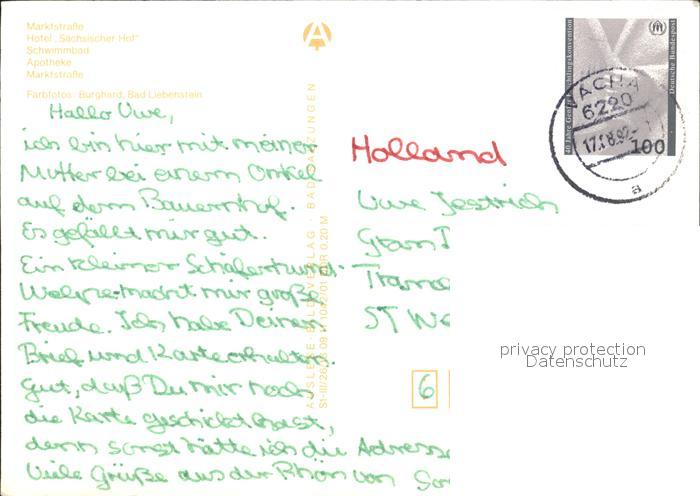 Marktstraße
Hotel „Sächsischer Hof"
Schwimmbad
Apotheke
Marktstraße
Farbfotos: Burghard, Bad Liebenstein
Hallo Uwe,
ich bin hier mit meiner
Mutter bei einem Onkel
auf dem Bauernhof.
Es gefällt mir gut.
Ein kleiner Schäferhund-
Welpe macht mir große
Freude. Ich habe Deinen
Brief und Karte erhalten.
Gut, daß Du mir noch
die Karte geschickt hast,
denn sonst hätte ich die Adresse
Viele Grüße aus der Rhön von
BILD VERLAG · BAD
Holland
Uwe Jestrich
Gran
ST
6
40 Jahre Genfer Flüchtlingskonvention
Deutsche Bundespost
100
VACHA
6220
17.-8.92-
a
privacy protection
Datenschutz